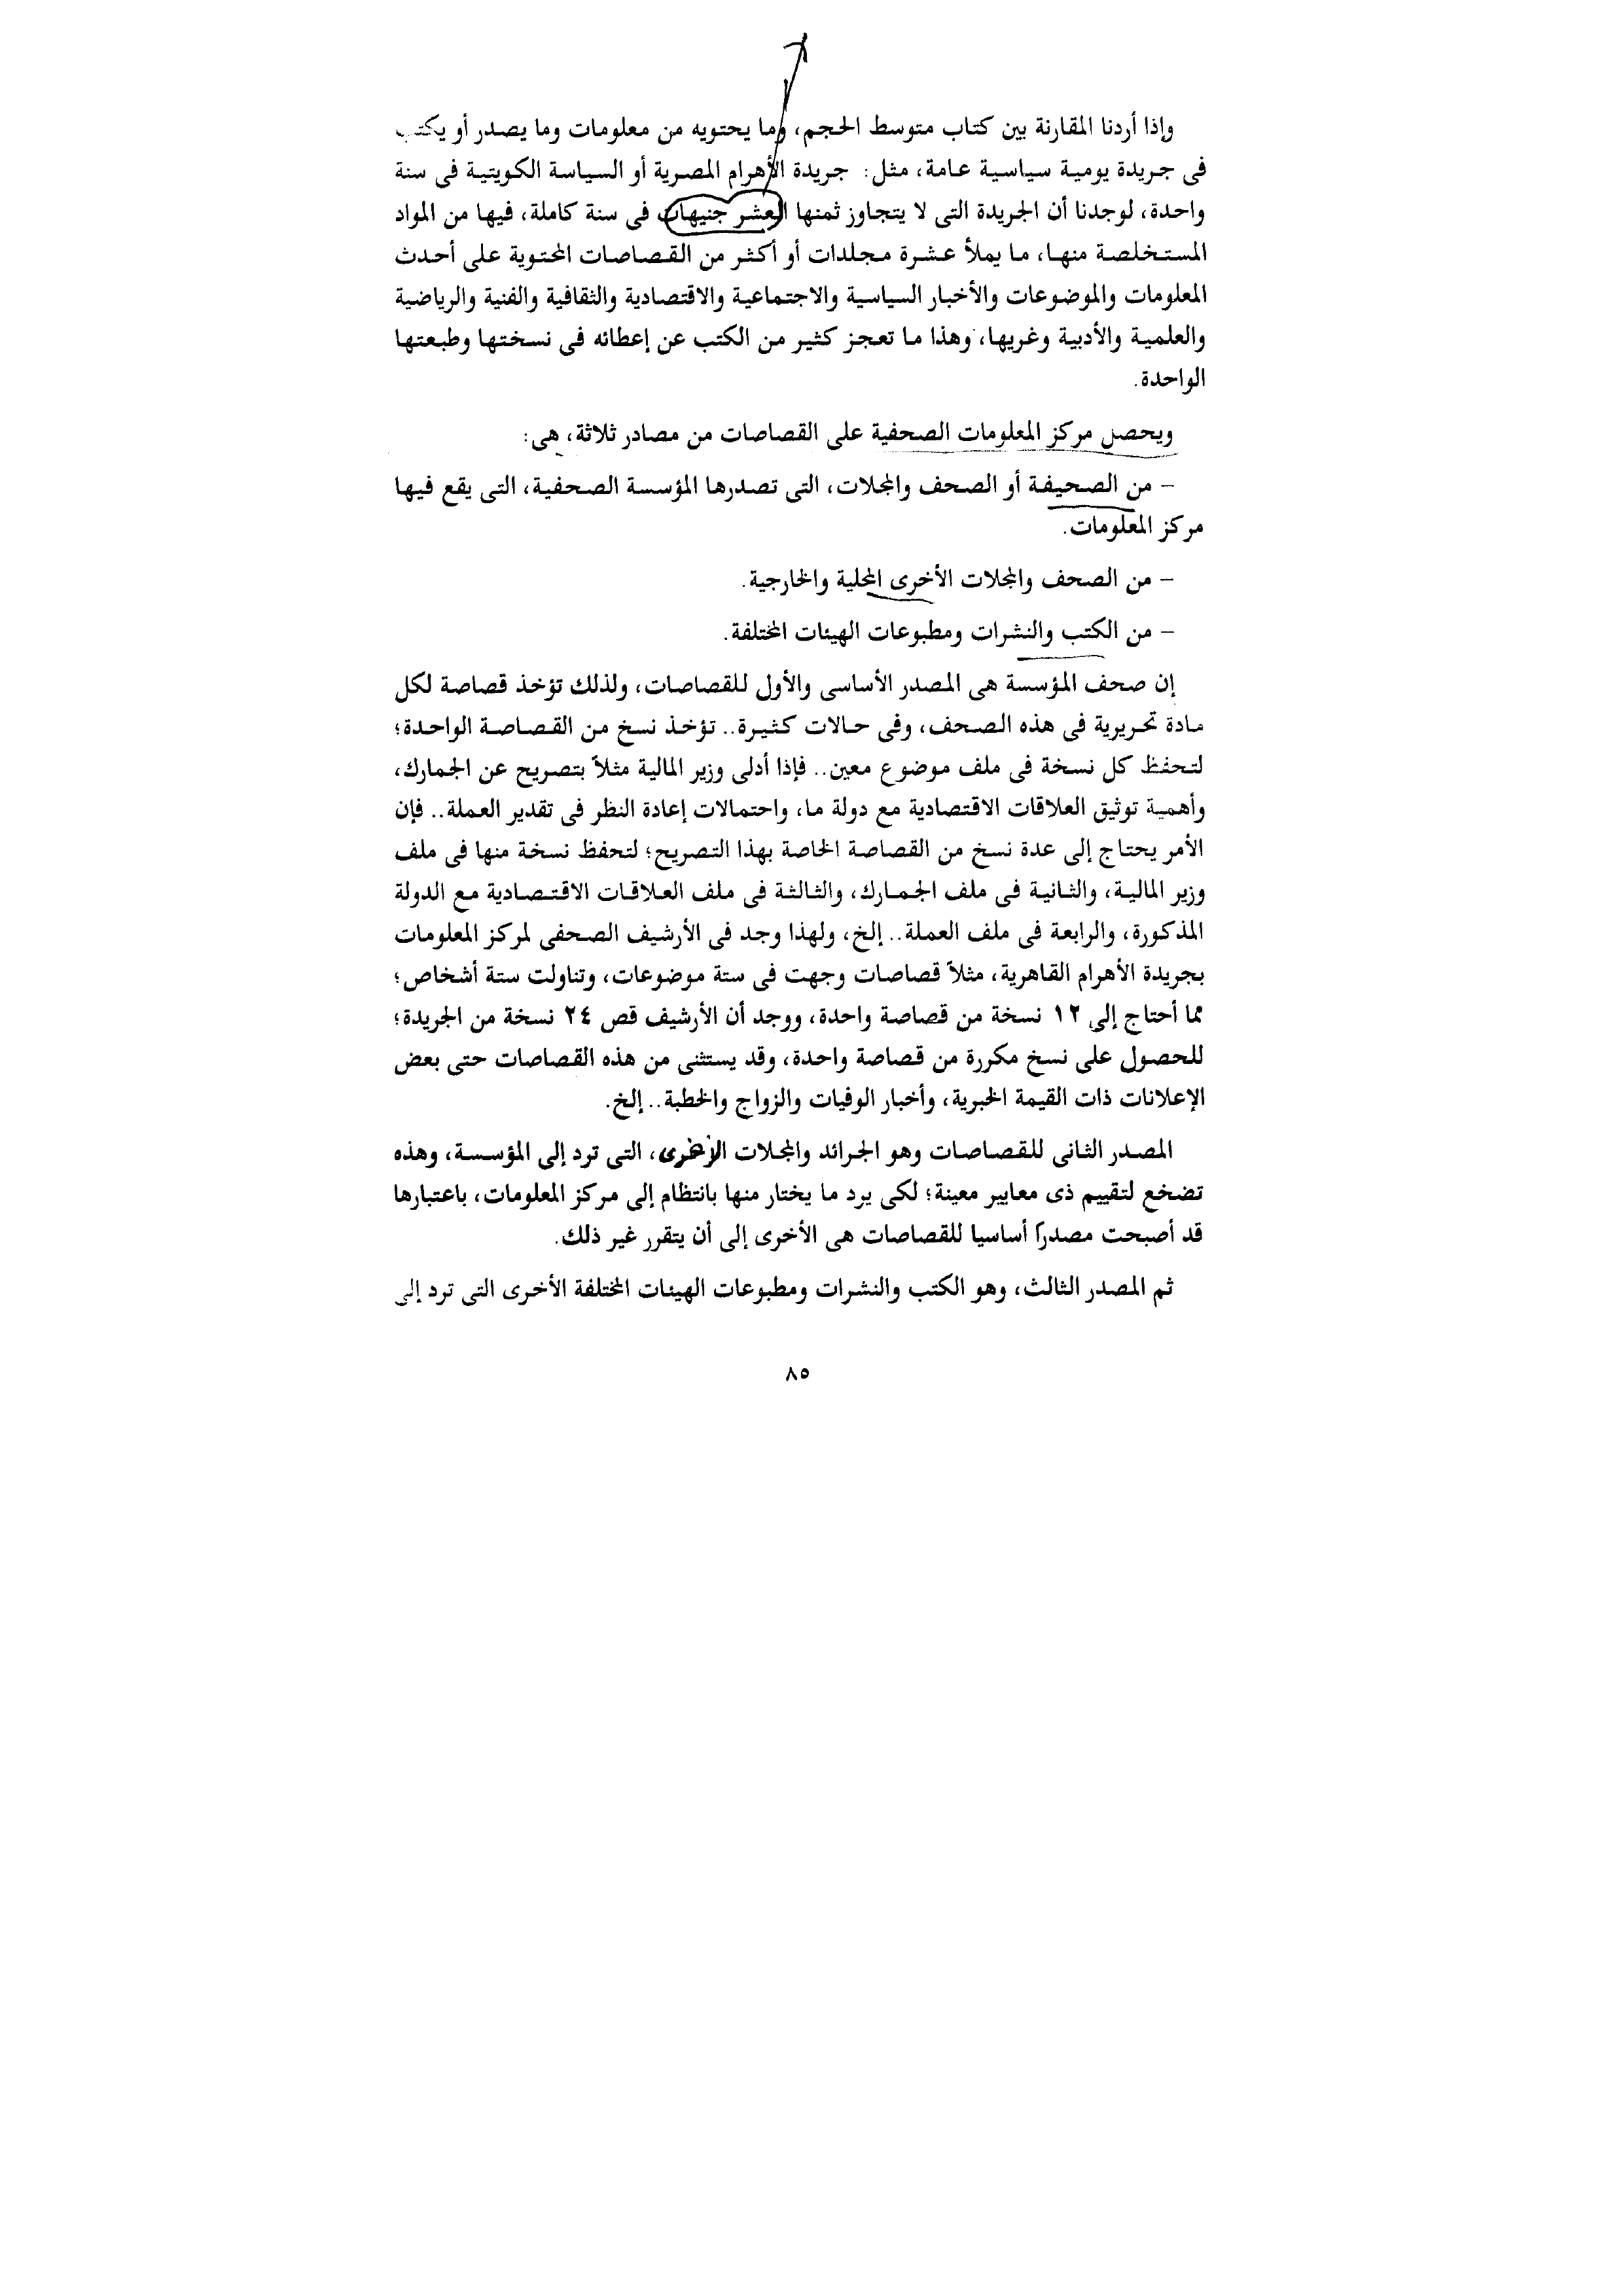 وإذا أردنا المقارنة بين كتاب متوسط الحجم، وما يحتويه من معلومات وما يصدر أو يكتب
فى جريدة يومية سياسية عامة، مثل: جريدة الأهرام المصرية أو السياسة الكويتية فى سنة
واحدة، لوجدنا أن الجريدة التى لا يتجاوز ثمنها العشر جنيهات فى سنة كاملة، فيها من المواد
المستخلصة منها، ما يملأ عشرة مجلدات أو أكثر من القصاصات المحتوية على أحدث
المعلومات والموضوعات والأخبار السياسية والاجتماعية والاقتصادية والثقافية والفنية والرياضية
والعلمية والأدبية وغريها، وهذا ما تعجز كثير من الكتب عن إعطائه فى نسختها وطبعتها
الواحدة.
ويحصل مركز المعلومات الصحفية على القصاصات من مصادر ثلاثة، هى:
– من الصحيفة أو الصحف والمجلات، التى تصدرها المؤسسة الصحفية، التى يقع فيها
مركز المعلومات.
– من الصحف والمجلات الأخرى المحلية والخارجية.
– من الكتب والنشرات ومطبوعات الهيئات المختلفة.
إن صحف المؤسسة هى المصدر الأساسى والأول للقصاصات، ولذلك تؤخذ قصاصة لكل
مادة تحريرية فى هذه الصحف، وفى حالات كثيرة.. تؤخذ نسخ من القصاصة الواحدة؛
لتحفظ كل نسخة فى ملف موضوع معين.. فإذا أدلى وزير المالية مثلاً بتصريح عن الجمارك،
وأهمية توثيق العلاقات الاقتصادية مع دولة ما، واحتمالات إعادة النظر فى تقدير العملة.. فإن
الأمر يحتاج إلى عدة نسخ من القصاصة الخاصة بهذا التصريح؛ لتحفظ نسخة منها فى ملف
وزير المالية، والثانية فى ملف الجمارك، والثالثة فى ملف العلاقات الاقتصادية مع الدولة
المذكورة، والرابعة فى ملف العملة.. إلخ، ولهذا وجد فى الأرشيف الصحفى لمركز المعلومات
بجريدة الأهرام القاهرية، مثلاً قصاصات وجهت فى ستة موضوعات، وتناولت ستة أشخاص؛
مما أحتاج إلى ١٢ نسخة من قصاصة واحدة، ووجد أن الأرشيف قص ٢٤ نسخة من الجريدة؛
للحصول على نسخ مكررة من قصاصة واحدة، وقد يستثنى من هذه القصاصات حتى بعض
الإعلانات ذات القيمة الخبرية، وأخبار الوفيات والزواج والخطبة.. إلخ.
المصدر الثانى للقصاصات وهو الجرائد والمجلات ، التى ترد إلى المؤسسة، وهذه
تضخع لتقييم ذى معايير معينة؛ لكى يرد ما يختار منها بانتظام إلى مركز المعلومات، باعتبارها
قد أصبحت مصدرًا أساسيا للقصاصات هى الأخرى إلى أن يتقرر غير ذلك.
ثم المصدر الثالث، وهو الكتب والنشرات ومطبوعات الهيئات المختلفة الأخرى التى ترد إلى
٨٥